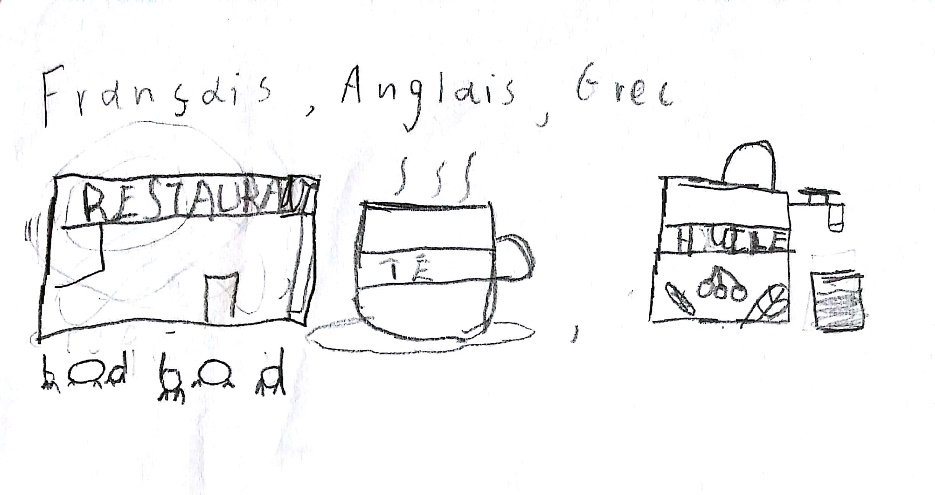 Français, Anglais, Grec
RESTAURANT
TÉ
HUILE